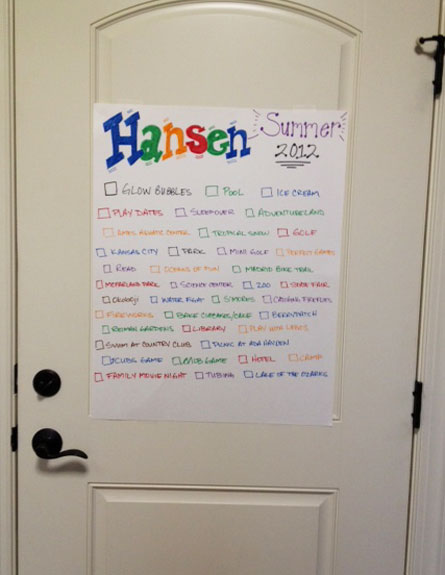 Hansen Summer 2012
GLOW BUBBLES POOL ICE CREAM
PLAY DATES SLEEPOVER ADVENTURELAND
AMES AQUATIC CENTER TROPICAL SNOW GOLF
KANSAS CITY PARK MINI GOLF PERFECT GAMES
READ OCEANS OF FUN MADRID BIKE TRAIL
MCFARLAND PARK SCIENCE CENTER ZOO STATE FAIR
OKOBOJI WATER FIGHT S'MORES CATCHING FIREFLIES
FIREWORKS BAKE CUPCAKES/CAKE BERRYPATCH
REIMAN GARDENS LIBRARY PLAY WITH LEGOS
SWIM AT COUNTRY CLUB PICNIC AT ADA HAYDEN
CUBS GAME GAME HOTEL CAMP
FAMILY MOVIE NIGHT TUBING LAKE OF THE OZARKS